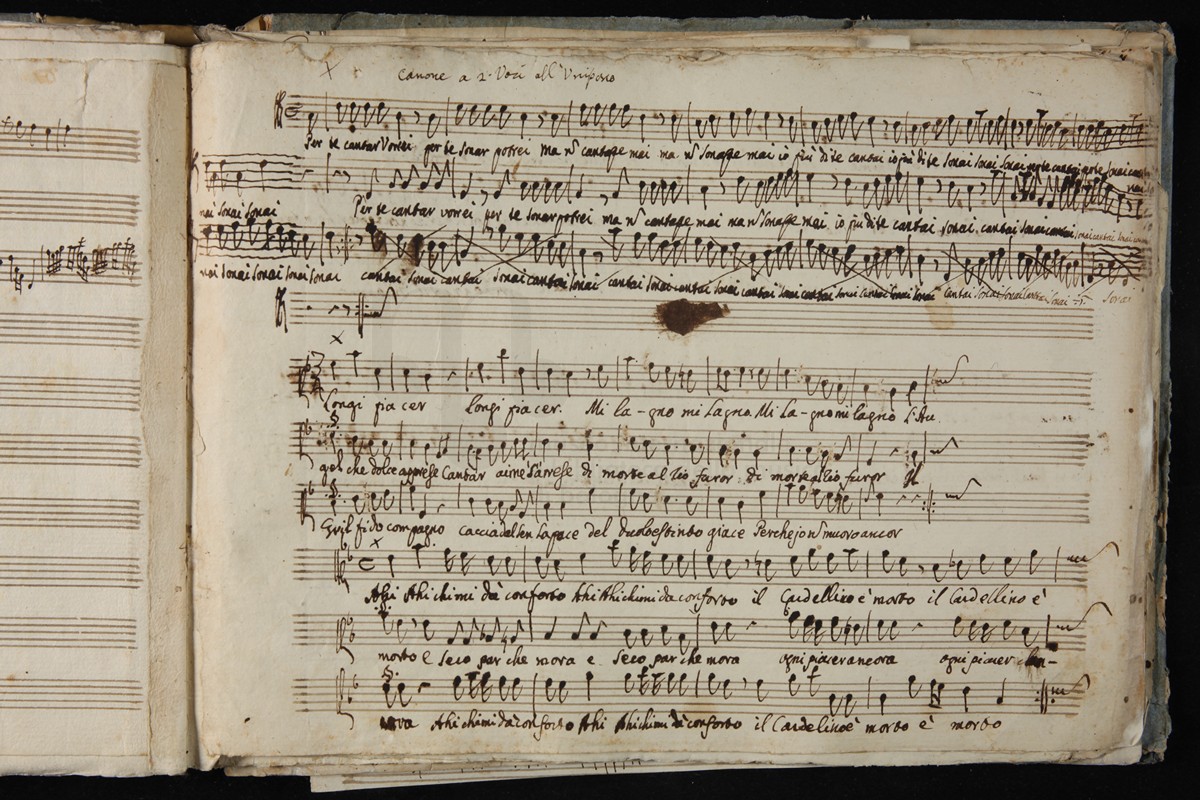 Canone a 2. Voci all'Uniposo
Per te cantar Vorrei per te Sonar potrei ma nõ cantasse mai ma nõ Sonasse mai io più di te cantai io più di te Sonai Sonai Sonai
nai Sonai Sonai
Per te cantar vorrei per te Sonar potrei ma nõ cantasse mai ma nõ Sonasse mai io più di te cantai Sonai cantai Sonai cantai
nai Sonai Sonai Sonai Sonai cantai Sonai cantai Sonai cantai Sonai cantai Sonai cantai Sonai cantai Sonai cantai Sonai cantai Sonai cantai
Longi piacer Longi piacer. Mi la-gno mi Lagno. Mi La-gno mi lagno L'Au
gel che dolce apprese Cantar aimè s'arrese di morte al rio furor di morte al rio furor
Gvil fido compagno caccia del sen la pace del Duolo estinto giace Perche jo nõ muoro ancor
Ahi Ahi chi mi dà conforto Ahi Ahi chi mi da conforto il Cardellino è morto il Cardellino è
morto e Seco par che mora e Seco par che mora ogni piacer ancora ogni piacer
Ahi chi mi dà conforto Ahi Ahi chi mi dà conforto il Cardelino è morto è morto